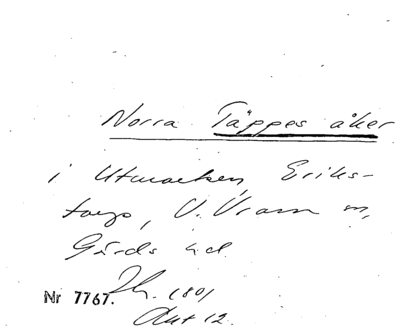 Norra Täppes åker
i Utmarken, Eriks-
torp, V. Vram sn,
Gärds hd.
Nr 7767. Lh. 1801
Akt 12.